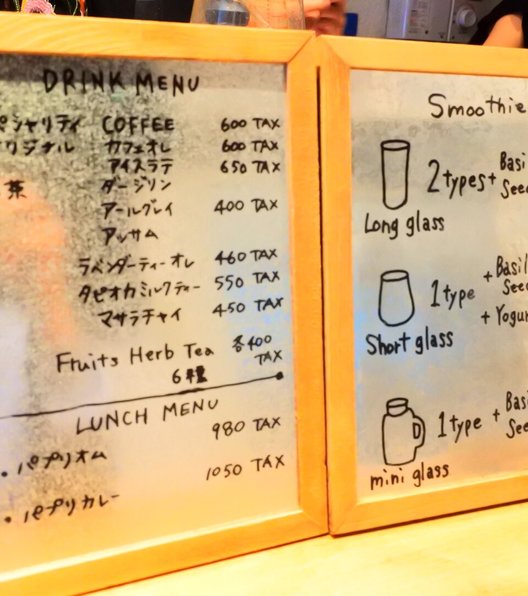 DRINK MENU
ペシャリティ COFFEE 600 TAX
リジナル カフェオレ 600 TAX
アイスラテ 650 TAX
茶 ダージリン
アールグレイ 400 TAX
アッサム
ラベンダーティーオレ 460 TAX
タピオカミルクティー 550 TAX
マサラチャイ 450 TAX
Fruits Herb Tea 各400 TAX
6種
LUNCH MENU
980 TAX
・パプリオム
1050 TAX
・パプリカレー
Smoothie
2types + Basi
Seed
Long glass
1type + Basil
Seed
+ Yogur
Short glass
1type + Basi
Seed
mini glass